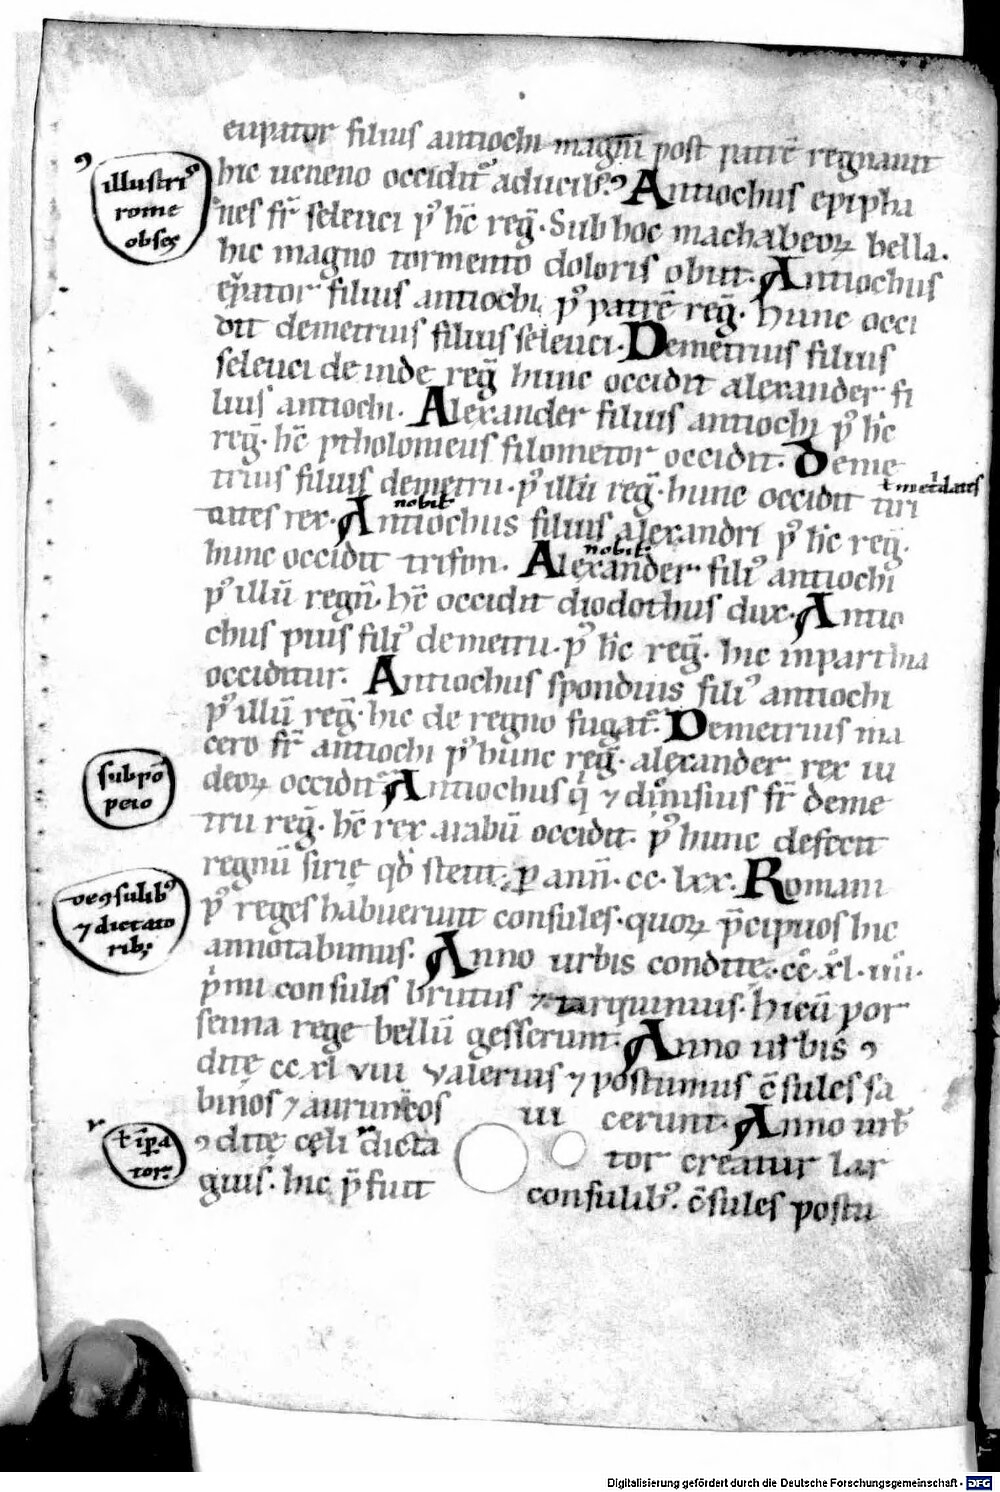 eupator filius antiochi magni post patrē regnauit
hic ueneno occidit᷒ aducib᷒.
illustri᷒
rome
obses
Antiochus epipha
nes fr̄ seleuci p᷒ hc̄ reḡ. Sub hoc machabeoꝝ bella.
hic magno tormento doloris obiit. Antiochus
eup̄ator filius antiochi p᷒ patrē reḡ. Hunc occi
dit demetrius filius seleuci. Demetrius filius
seleuci deinde reḡ hunc occidit alexander fi
lius antiochi. Alexander filius antiochi p᷒ hc̄
reḡ. hc̄ ptholomeus filometor occidit. Deme
trius filius demetrii. p᷒ illū reḡ. hunc occidit tiri
nobil̄
dates rex. Antiochus filius alexandri p᷒ hc̄ reḡ.
nobil̄
hunc occidit trifon. Alexander fili᷒ antiochi
p᷒ illū regn̄. hc̄ occidit diodothus dux. Antio
chus pius fili᷒ demetrii. p᷒ hc̄ reḡ. hic inparthia
occiditur. Antiochus spondius fili᷒ antiochi
p᷒ illū reḡ. hic de regno fugat᷒. Demetrius ma
cero fr̄ antiochi p᷒ hunc reḡ. alexander rex iu
deoꝝ occidit᷒
subpō
peio
Antiochus q̄ ⁊ dionisius fr̄ deme
trii reḡ. hc̄ rex arabū occidit. p᷒ hunc defecit
regnū sirię qd̄ stetit ꝑ ann̄. cc. lxx. Romani
deꝯsulib᷒
⁊ dictato
rib;
p᷒ reges habuerunt consules. quoꝝ p̄cipuos hic
annotabimus. Anno urbis conditę. cc̄. xl. iiii.
p̄mi consules brutus ⁊ tarquinius. hi cū por
senna rege bellū gesserunt. Anno urbis ꝯ
ditę cc xl viii valerius ⁊ postumus c̄sules sa
binos ⁊ auruncos uicerunt. Anno urb᷒
ꝯditę cęli dictator creatur lar
t̄ ip̄a
tor
gius. hic p̄fuit consulib᷒. c̄sules postu
Digitalisierung gefördert durch die Deutsche Forschungsgemeinschaft - DFG